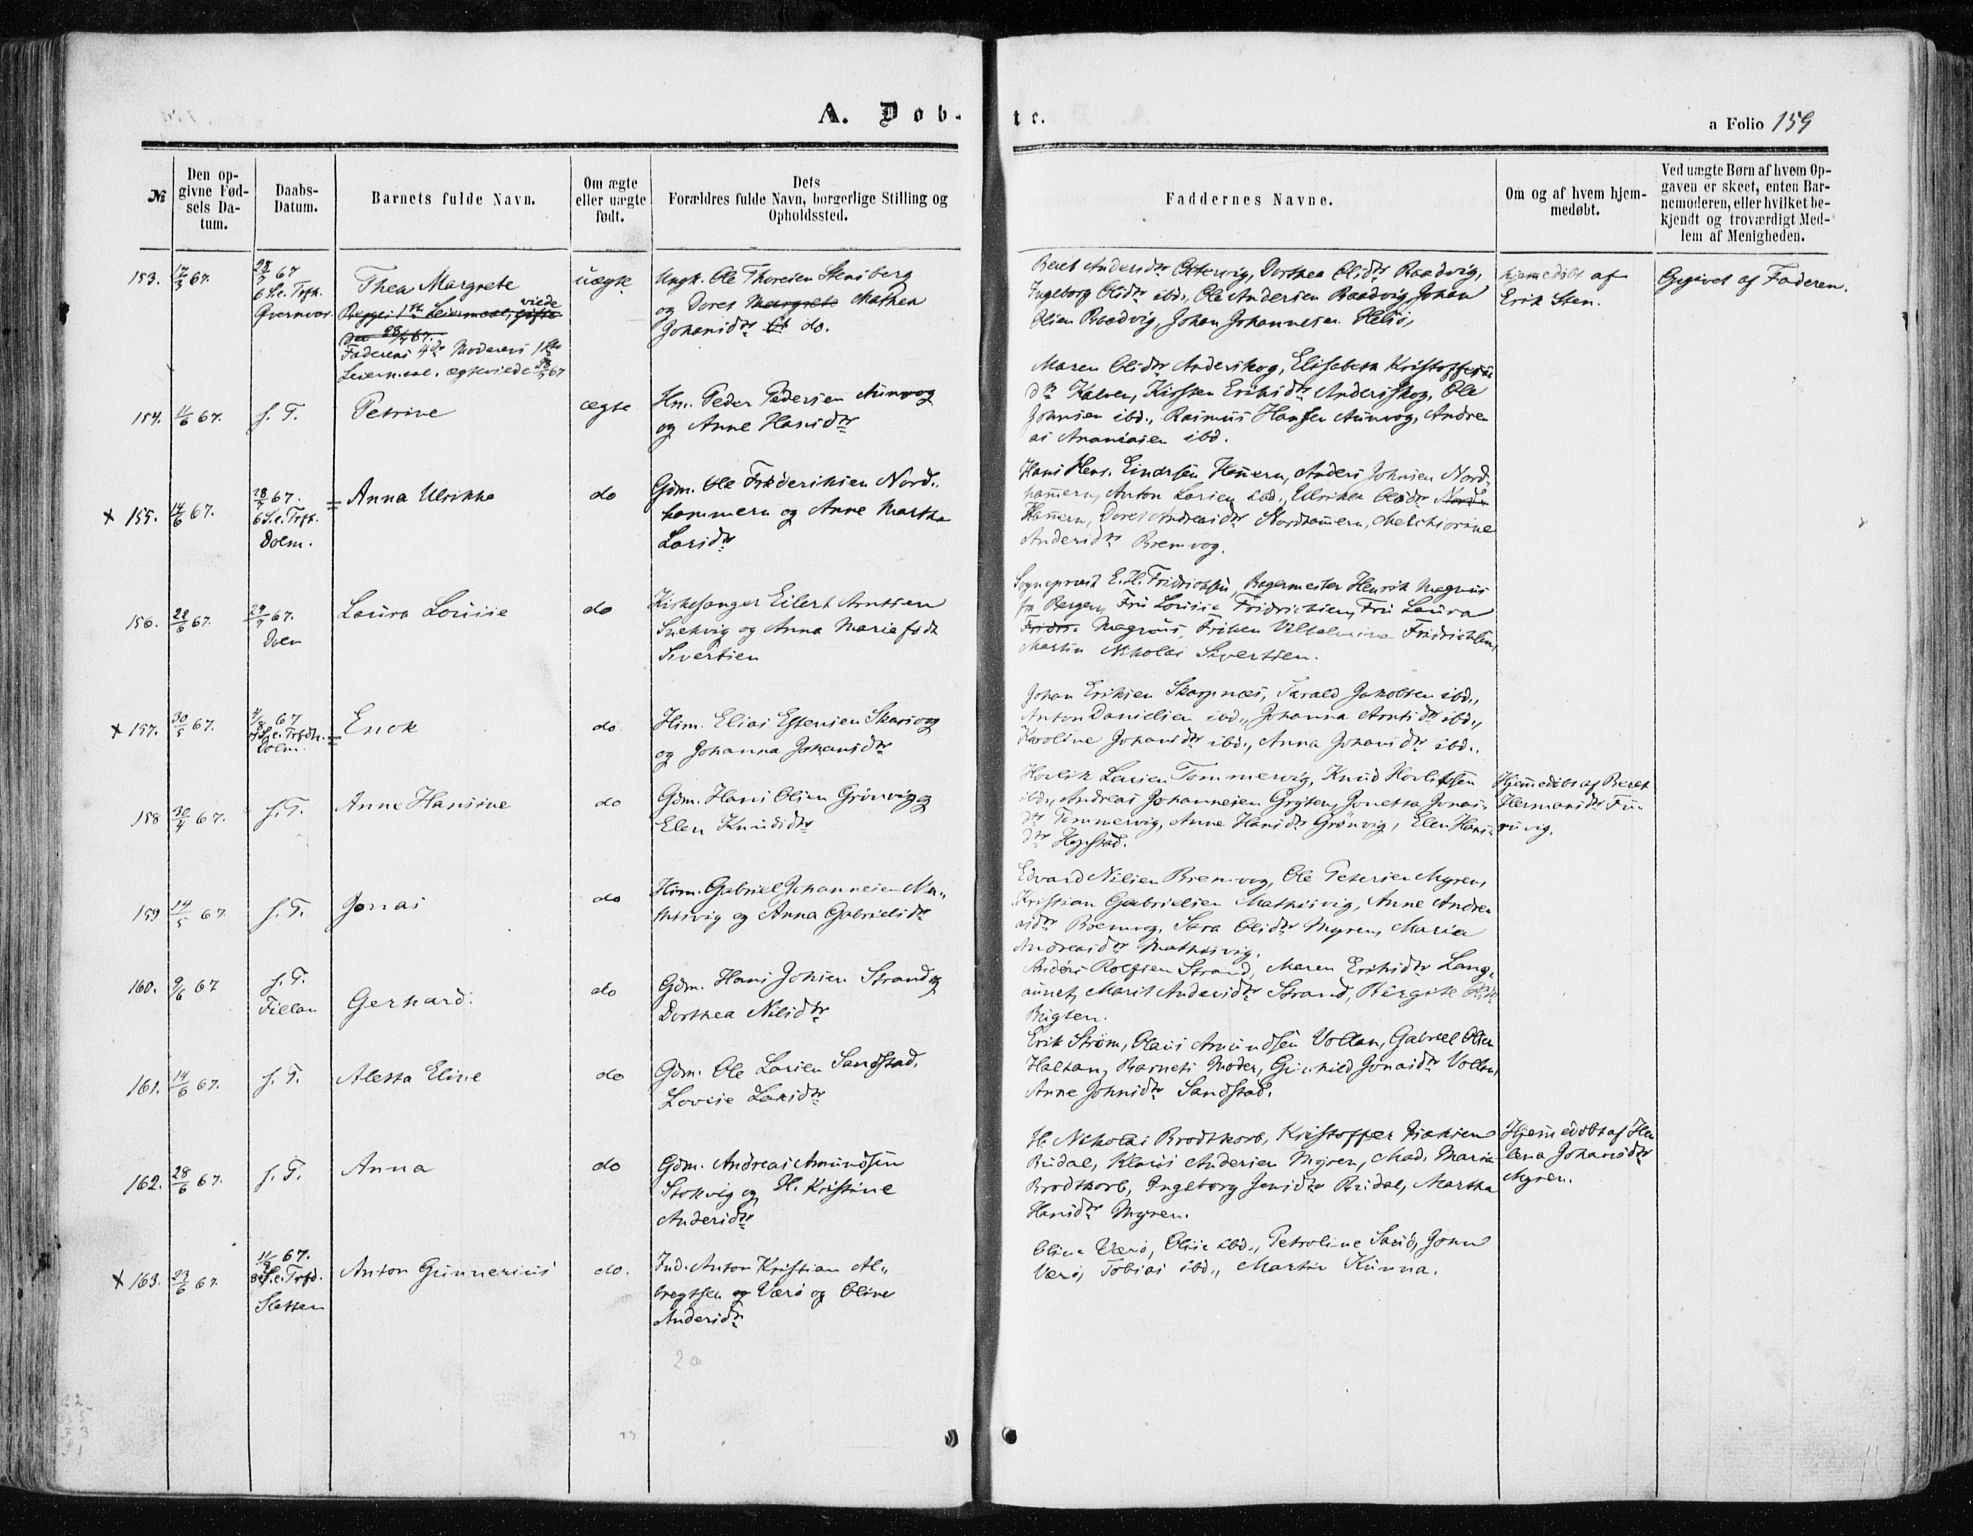 A. Døb-
te.
a Folio 159
№
Den op-
givne Fød-
sels Da-
tum.
Daabs-
Datum.
Barnets fulde Navn.
Om ægte
eller uægte
født.
Dets
Forældres fulde Navn, borgerlige Stilling og
Opholdssted.
Faddernes Navne.
Om og af hvem hjem-
medøbt.
Ved uægte Børn af hvem Op-
gaven er skeet, enten Bar-
nemoderen, eller hvilket be-
kjendt og troværdigt Med-
lem af Menigheden.
153.
67.
28/7 67
6 S. e. Tref.
Thea Margrete
Begges 1ste Leiermaal, viede
28/7 67.
Faderens 4de Moderens 1ste
Leiermaal. ægteviede 28/7 67
uægte
Ungk. Ole Thoresen Stensberg
og Doret Margrete Mathea
Johansdtr do.
Beret Andersdtr Ottervig, Dorthea Olsdtr Raadvig,
Ingeborg Olsdtr ibd., Ole Andersen Raadvig, Johan
Olsen Raadvig, Johan Johannesen
Hjemmedøbt af
Erik Sten.
Opgivet af Faderen.
154.
11/6 67.
f. T.
Petrine
ægte
Hm. Peder Pedersen Aunvog
og Anne Hansdtr
Maren Olsdtr Anderskog, Elisabeth Kristoffers
dtr Kalven, Kirsten Eriksdtr Anderskog, Ole
Johnsen ibd., Rasmus Hansen Aunvog, Andre
as Ananiasen ibd.
x 155.
14/6 67.
28/7 67.
6 S. e. Tref.
Dolm.
Anna Ulrikke
do
Gdm. Ole Frederiksen Nord-
hammern og Anne Martha
Larsdtr
Hans Hens. Einarsen Hamern, Anders Johnsen Nord-
hamern, Anton Larsen ibd., Ulrikke Olsdtr Nord
Hamern, Doret Andreasdtr Nordhamern, Melchiorine
Andersdtr Bremvog.
156.
67.
29/7 67.
Dolm
Laura Louise
do
Kirkesanger Eilert Arntsen
Snekvig og Anna Marie født
Sivertsen
Sogneprest E. H. Fridrichsen, Henrik Magnus
fra Bergen, Fru Louise Fridrichsen, Fru Laura
Magnus, Frøken Vilhelmine Fridrichsen,
Martin Nikolai Sivertsen.
x 157.
67.
4/8 67
Dolm.
Enok
do.
Hsm. Elias Estensen Skarsvog
og Johanna Johansdtr
Johan Eriksen Skarpnæs, Tarald Jakobsen ibd.,
Anton Danielsen ibd., Johanna Arntsdtr ibd.,
Karoline Johansdtr ibd., Anna Johansdtr ibd.
158
30/4 67.
f. T.
Anne Hansine
do
Gdm. Hans Olsen Grønvig og
Elen Knudsdtr
Hovlik Larsen Tømmervig, Knud Hovliksen
ibd., Andreas Johannesen Gryten, Jonetta Jonas-
dtr Tømmervig, Anne Hansdtr Grønvig, Elen Hans-
dtr Hopstad.
Hjemmedøbt af Beret
Hermansdtr Fu-
ruvig.
159
14/5 67
f. T.
Jonas
do
Hsm. Gabriel Johannesen Ma-
thisvig og Anna Gabrielsdtr
Edvard Nilsen Bremvog, Ole Petersen Myren,
Kristian Gabrielsen Mathisvig, Anne Andre
asdtr Bremvog, Sara Olsdtr Myren, Maria
Andreasdtr Mathisvig.
160.
9/6 67
f. T.
Fillan
Gerhard.
do
Gdm. Hans Johsen Strand og
Dorthea Nilsdtr
Anders Rolfsen Strand, Maren Eriksdtr Lang-
aunet, Marit Andersdtr Strand, Birgite
161.
14/6 67.
f. T.
Aletta Eline
do
Gdm. Ole Larsen Sandstad,
Lovise Larsdtr
Erik Strøm, Olaus Amundsen Vollan, Gabriel Olsen
Haltan, Barnets Moder, Gunhild Jonasdtr Vollan,
Anne Johnsdtr Sandstad.
162.
28/6 67.
f. T.
Anna
do
Gdm. Andreas Amundsen
Stokvig og H. Kristine
Andersdtr
H. Nikolai Brodtkorb, Kristoffer Isaksen
Rudal, Klaus Andersen Myren, Mad. Maria
Brodtkorb, Ingeborg Jensdtr Rudal, Martha
Hansdtr Myren.
Hjemmedøbt af Hel
ena Johansdtr
Myren.
x 163.
23/6 67.
67.
8 S. e. Trfd.
Sletten
Anton Gunnerius
do.
Ind. Anton Kristian Al-
bregtsen og Værø og Oline
Andersdtr
Oline Værø, Olise ibd., Petroline Sørø, John
Værø, Tobias ibd., Martin Kunna.
2a